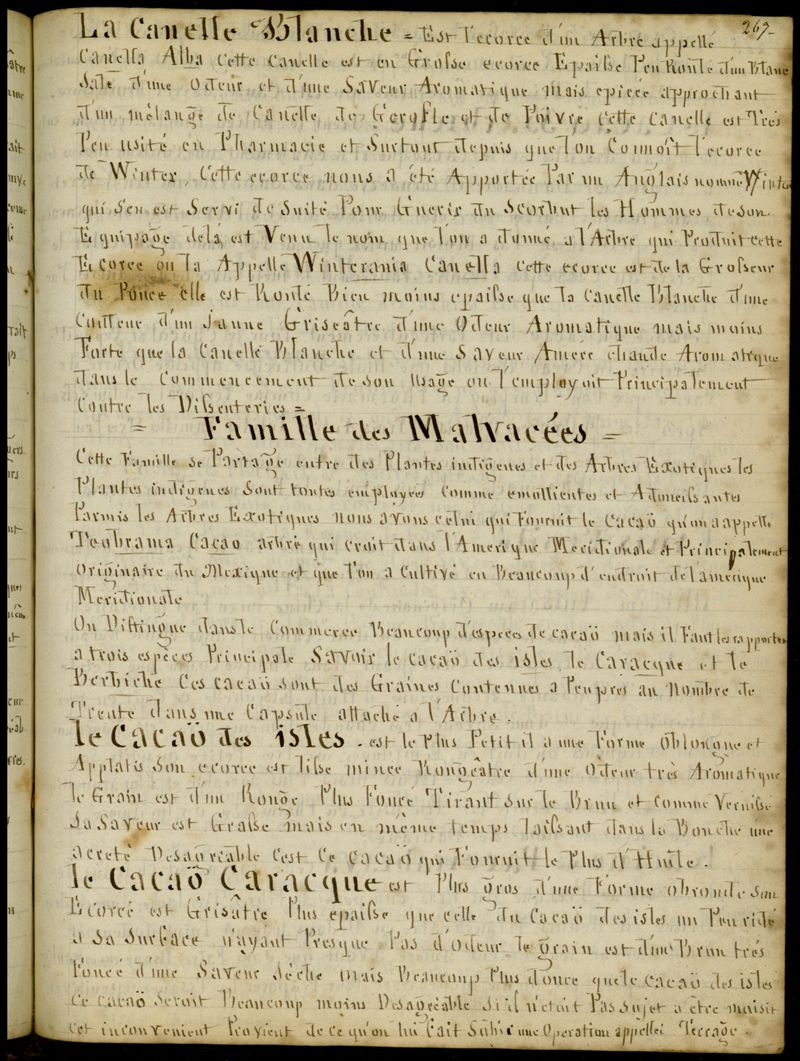 267-
La Canelle Blanche = Est l'ecorce d'un Arbre appellé
Canella Alba Cette Canelle est en Grosse ecorce Epaisse Peu Roulé d'un Blanc
Sale d'une Odeur et d'une Saveur Aromatique mais epicée approchant
d'un mélange de Canelle de Gerofle et de Poivre Cette Canelle est Très
Peu usité en Pharmacie et Surtout depuis que l'on Connoît l'ecorce
de Winter, Cette ecorce nous a été Apportée Par un Anglais nommé Winter
qui S'en est Servi de Suite Pour Guerir du Scorbut les Hommes de son
Equipage delà est Venu le nom que l'on a donné a l'Arbre qui Produit cette
Ecorce on la Appelle Winterania Canella Cette ecorce est de la Grosseur
du Pouce elle est Roulé Bien moins epaisse que la Canelle Blanche d'une
Couleur d'un Jaune Griseâtre d'une Odeur Aromatique mais moins
Forte que la Canelle Blanche et d'une Saveur Amere chaude Aromatique
dans le Commencement de Son Usage on l'employoit Principalement
Contre les Dissenteries =
= Famille des Malvacées =
Cette Famille se Partage entre des Plantes indigenes et des Arbres Exotiques les
Plantes indigenes Sont toutes employées Comme emollientes et Adoucissantes
Parmis les Arbres Exotiques nous avons celui qui Fournit le Cacaö qu'on appelle
Teobrama Cacao arbre qui croit dans l'Amerique Meridionale et Principalement
Originaire du Mexique et que l'on a Cultivé en Beaucoup d'endroit de lamerique
Meridionale
On Distingue dans le Commerce Beaucoup d'especes de cacaö mais il Faut les rapporter
a trois espèces Principale Savoir le cacaö des isles le Caracque et le
Berbiche Ces cacaö sont des Graines Contenues a Peuprès au Nombre de
Trente dans une Capsule attaché a l'Arbre.
le Cacaö des isles. est le Plus Petit il a une Forme Oblongue et
Applatis Son ecorce est lisse mince Rougeâtre d'une Odeur très Aromatique
le Grain est d'un Rouge Plus Foncé Tirant Sur le Brun et Comme Vernissé
Sa Saveur est Graisse mais en même temps laissant dans la Bouche une
acreté Desagréable C'est Ce Cacaö qui Fournit le Plus d'Huile.
le Cacaö Caracque est Plus gros d'une Forme obronde Son
Ecorce est Grisâtre Plus epaisse que celle du Cacaö des isles un Peu ridé
a Sa Surface n'ayant Presque Pas d'Odeur le grain est d'une Brun très
Foncé d'une Saveur Sèche mais Beaucoup Plus douce que le cacaö des isles
Ce cacaö Seroit Beaucoup moins Desagréable S'il n'etoit Pas Sujet a être moisit
Cet inconvenient Provient de ce qu'on lui Fait Subir une Operation appellée Terrage.